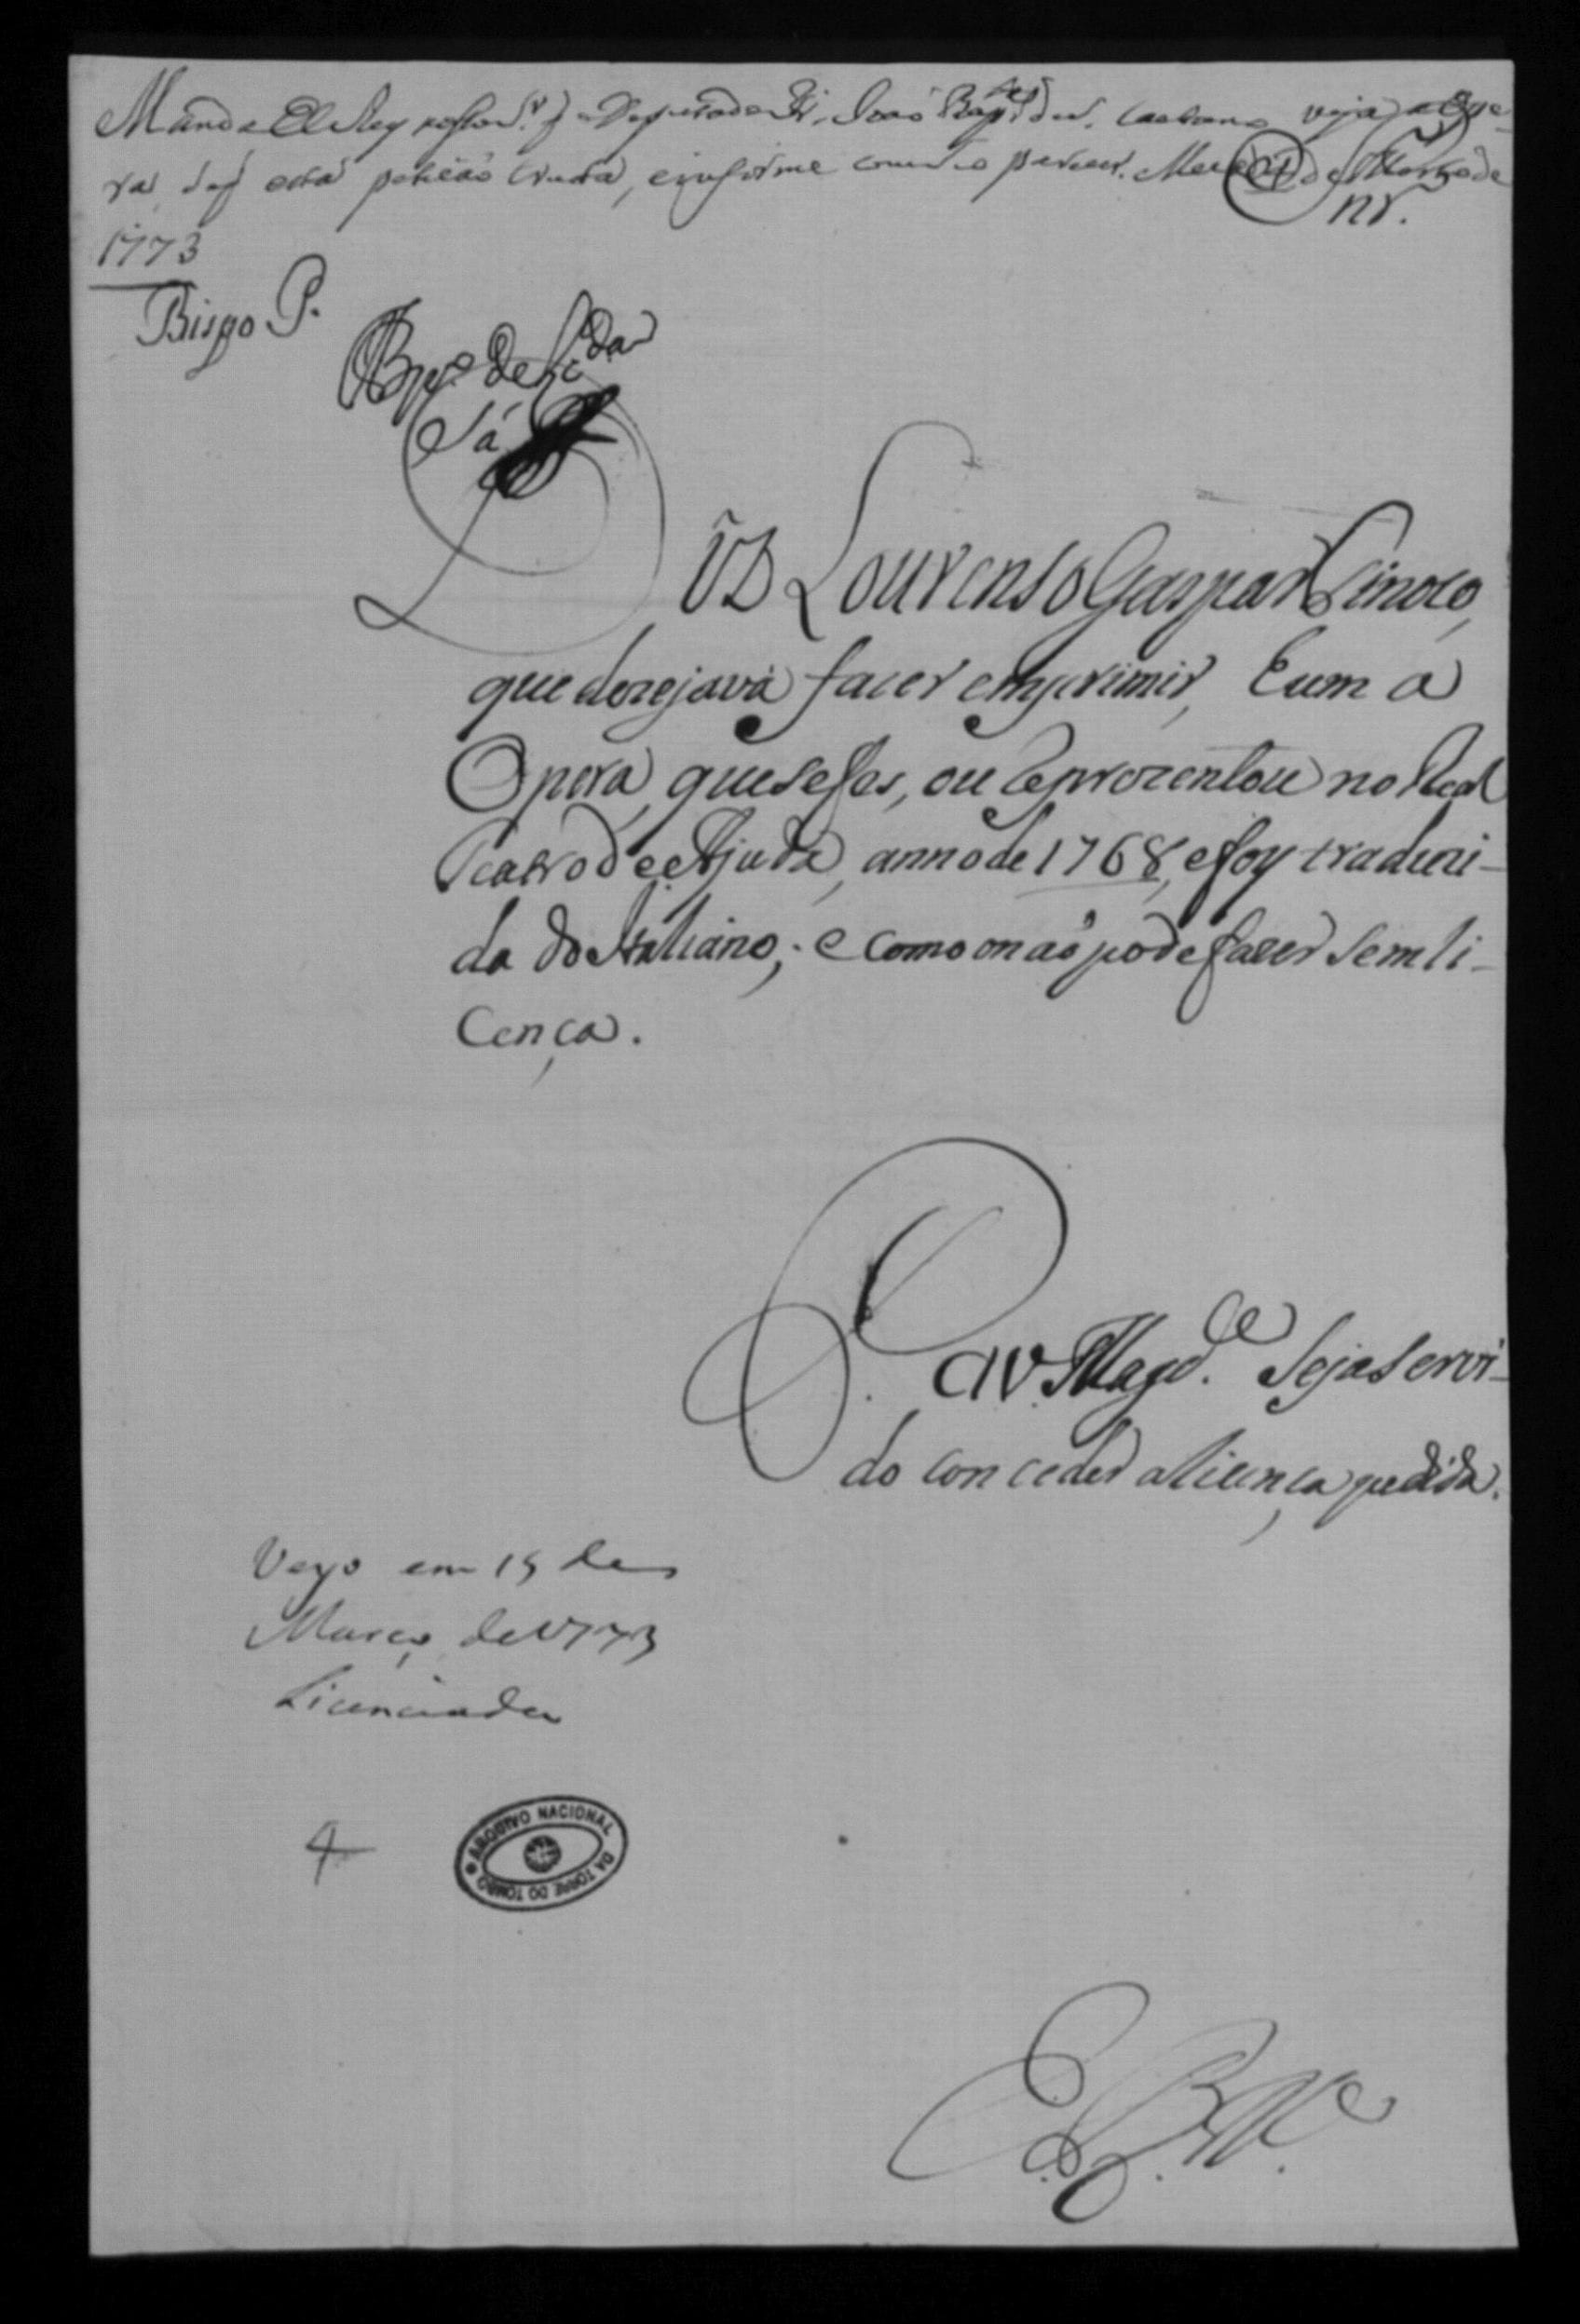 Manda El Rey nosso S.r q o Deputado Fr. João Bap.ta de S. Caetano veja a Ope-
ra, de q esta petição trata, e informe com o seo parecer. Meza de Março de
1773
Snr.
Bispo P.
Sá
Diz Lourenso Gaspar Sinoco,
que dezejava facer emprimir, Eum a
Opera, que se fes, ou Reprozentou no Real
Teatro de Ajuda, anno de 1768, e foy traduzi-
da do Italiano; e como o naõ pode facer sem li-
Cença.
P. a V. Mag.de Seja Servi-
do conceder a licença pedida.
Veyo em 15 de
Março de 1773
Licenciada
4
ARQUIVO NACIONAL DA TORRE DO TOMBO
E. R. M.ce